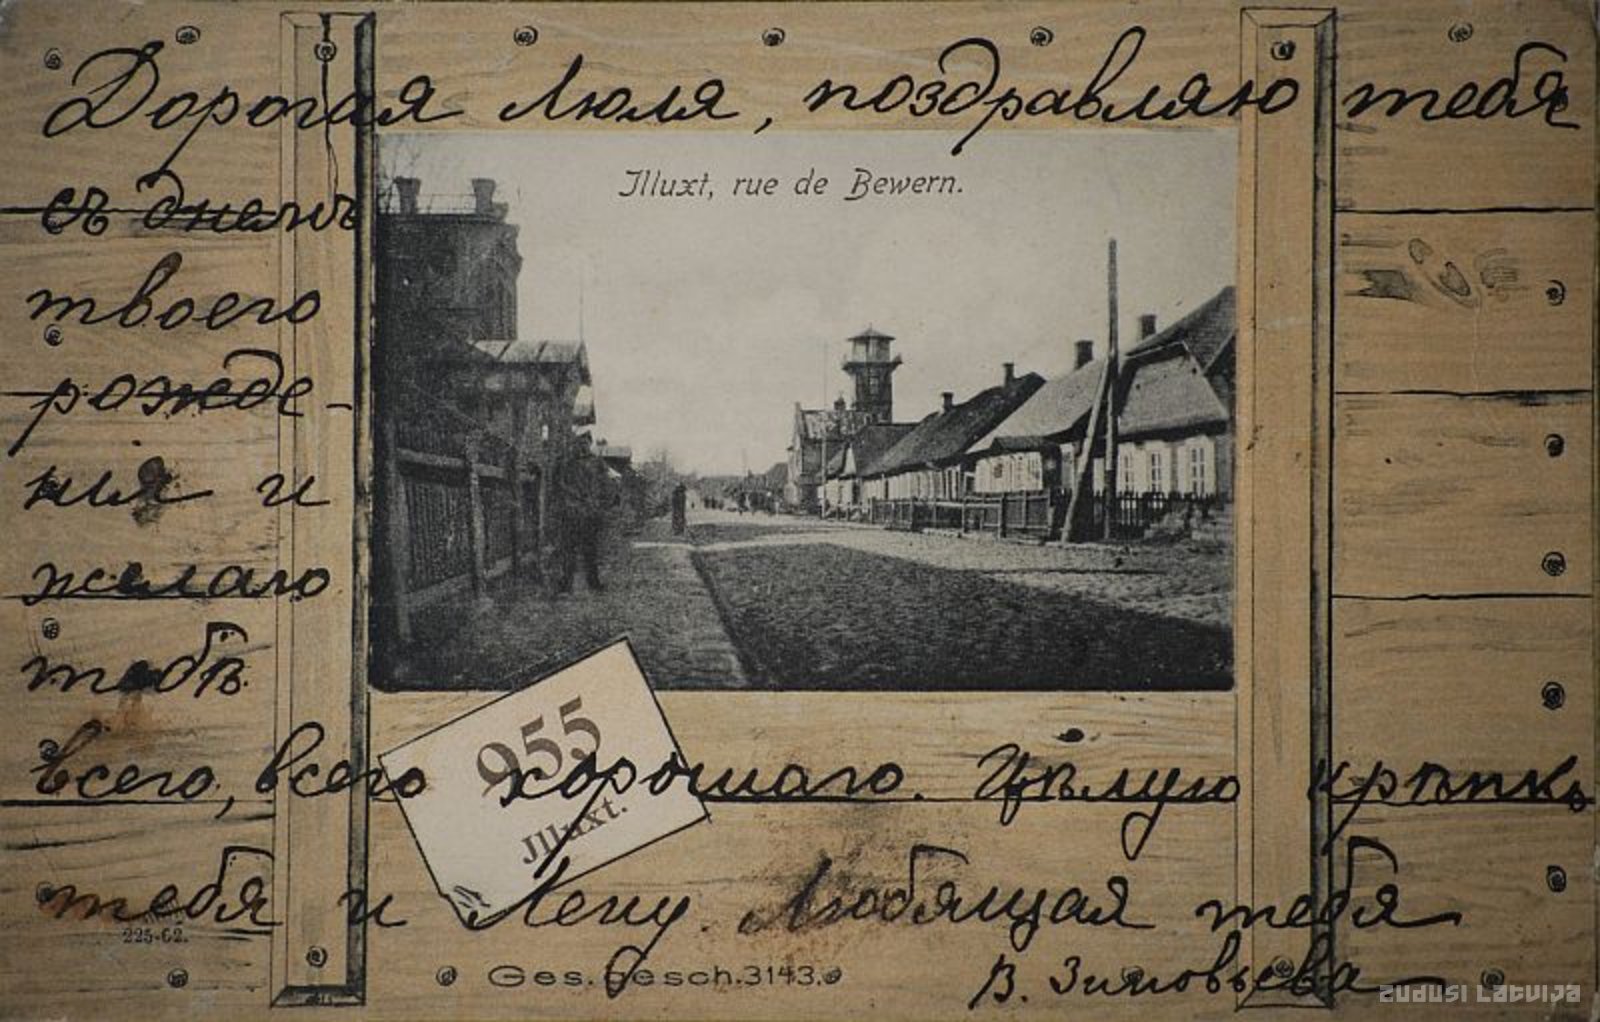 Дорогая Люля, поздравляю тебя
Illuxt, rue de Bewern.
съ днемъ
твоего
рожде-
нія и
желаю
тебѣ
955
всего, всего хорошаго. Цѣлую крѣпко
Illuxt.
тебя и Лену. Любящая тебя
225-62.
Ges. Gesch. 3143.
В. Зиновьева
ZUDUSI LATVIJA